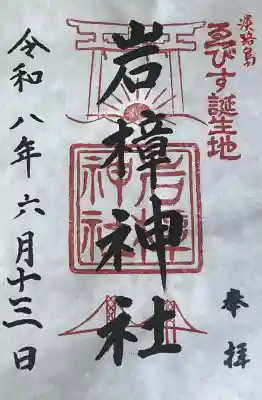 淡路島
ゑびす誕生地
奉拝
岩樟神社
岩樟
神社
令和八年六月十三日